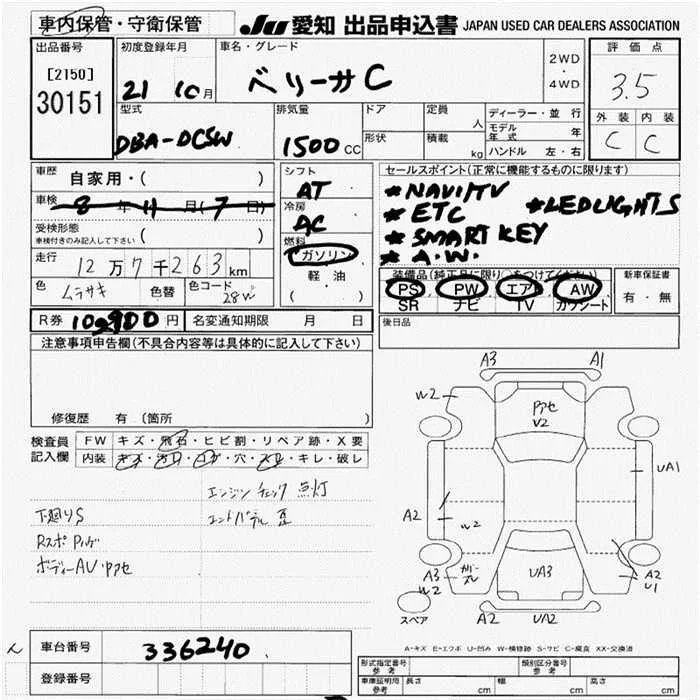 車内保管・守衛保管 JU 愛知 出品申込書 JAPAN USED CAR DEALERS ASSOCIATION
出品番号 初度登録年月 車名・グレード 2WD・4WD 評価点
[2150]
30151
21 10月 ベリーサC 3.5
型式 排気量 ドア 定員 人 ディーラー・並行 外装 内装
モデル年式 年
DBA-DC5W 1500CC 形状 積載 kg ハンドル 左・右 C C
車歴 自家用・( ) シフト AT セールスポイント(正常に機能するものに限ります)
車検 8年11月(7日) 冷房 AC
*NAVI/TV
*ETC *LEDLIGHTS
*SMARTKEY
*A.W.
受検形態
車検付きのみ記入して下さい ( )
燃料 ガソリン
軽・油
( )
走行 12万7千263km
装備品(純正品に限り○をつけてください) 新車保証書
色 ムラサキ 色替 色コード 28W
PS PW エアB AW 有・無
SR ナビ TV カワシート
R券 10,900円 名変通知期限 月 日 後日品
注意事項申告欄(不具合内容等は具体的に記入して下さい)
修復歴 有 (箇所 )
検査員記入欄 FW キズ・飛石・ヒビ割・リペア跡・X要
内装 キズ・汚れ・コゲ・穴・スレ・キレ・破レ
エンジンチェック点灯
下廻りS
ボディーAU・ワセ
A3 A1
W2
アセ
V2
UA1
A2
W2
A3
W2
UA3
A2
U1
スペア
A2 UA2
A-キズ E-エクボ U-凹み W-補修跡 S-サビ C-腐食 XX-交換済
車台番号 336240
登録番号
形式指定番号 参考 類別区分番号 参考
車庫証明用 参考 長さ cm 幅 cm 高さ cm